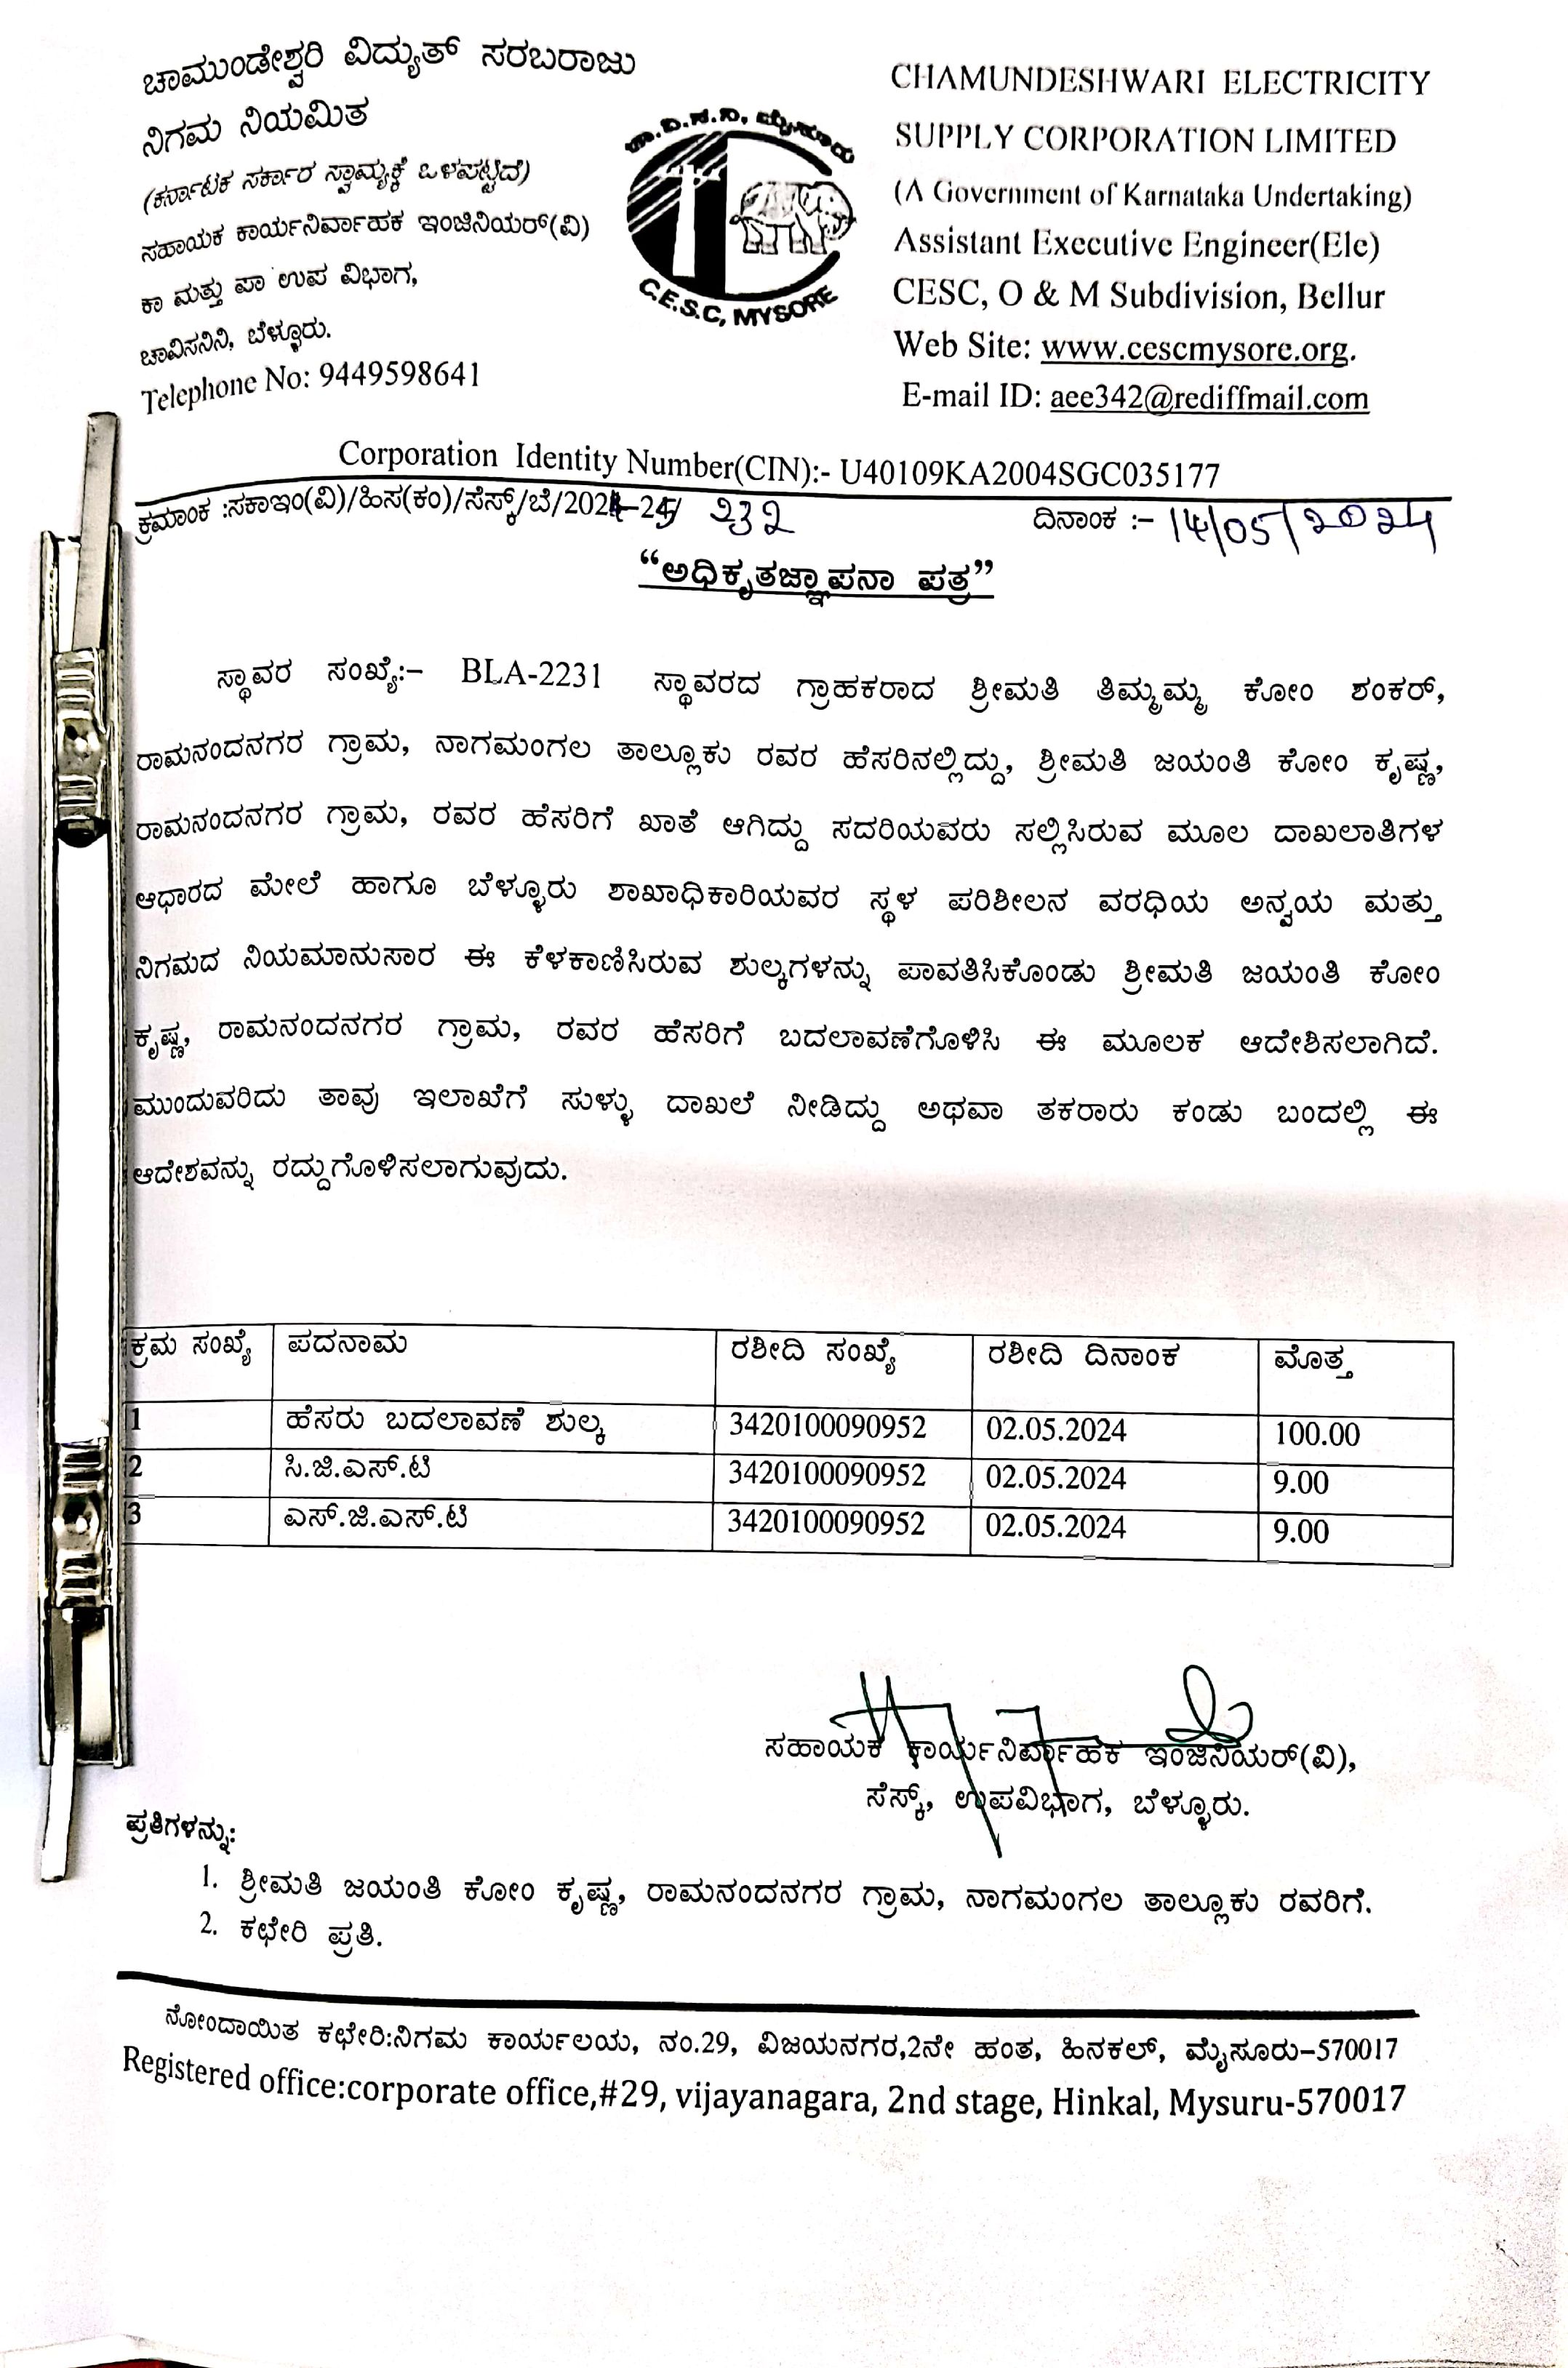 ಚಾಮುಂಡೇಶ್ವರಿ ವಿದ್ಯುತ್ ಸರಬರಾಜು
ನಿಗಮ ನಿಯಮಿತ
(ಕರ್ನಾಟಕ ಸರ್ಕಾರ ಸ್ವಾಮ್ಯಕ್ಕೆ ಒಳಪಟ್ಟಿದೆ)
ಸಹಾಯಕ ಕಾರ್ಯನಿರ್ವಾಹಕ ಇಂಜಿನಿಯರ್(ವಿ)
ಕಾ ಮತ್ತು ಪಾ ಉಪ ವಿಭಾಗ,
ಚಾವಿಸನಿನಿ, ಬೆಳ್ಳೂರು.
Telephone No: 9449598641
ಚಾ.ವಿ.ಸ.ನಿ, ಮೈಸೂರು
C.E.S.C, MYSORE
CHAMUNDESHWARI ELECTRICITY
SUPPLY CORPORATION LIMITED
(A Government of Karnataka Undertaking)
Assistant Executive Engineer(Ele)
CESC, O & M Subdivision, Bellur
Web Site: www.cescmysore.org.
E-mail ID: aee342@rediffmail.com
Corporation Identity Number(CIN):- U40109KA2004SGC035177
ಕ್ರಮಾಂಕ :ಸಕಾಇಂ(ವಿ)/ಹಿಸ(ಕಂ)/ಸೆಸ್ಕ್/ಬೆ/2024-25/ ೨೩೨ ದಿನಾಂಕ :- 14/05/೨೦೨4
“ಅಧಿಕೃತಜ್ಞಾಪನಾ ಪತ್ರ”
ಸ್ಥಾವರ ಸಂಖ್ಯೆ:- BLA-2231 ಸ್ಥಾವರದ ಗ್ರಾಹಕರಾದ ಶ್ರೀಮತಿ ತಿಮ್ಮಮ್ಮ ಕೋಂ ಶಂಕರ್,
ರಾಮನಂದನಗರ ಗ್ರಾಮ, ನಾಗಮಂಗಲ ತಾಲ್ಲೂಕು ರವರ ಹೆಸರಿನಲ್ಲಿದ್ದು, ಶ್ರೀಮತಿ ಜಯಂತಿ ಕೋಂ ಕೃಷ್ಣ,
ರಾಮನಂದನಗರ ಗ್ರಾಮ, ರವರ ಹೆಸರಿಗೆ ಖಾತೆ ಆಗಿದ್ದು ಸದರಿಯವರು ಸಲ್ಲಿಸಿರುವ ಮೂಲ ದಾಖಲಾತಿಗಳ
ಆಧಾರದ ಮೇಲೆ ಹಾಗೂ ಬೆಳ್ಳೂರು ಶಾಖಾಧಿಕಾರಿಯವರ ಸ್ಥಳ ಪರಿಶೀಲನ ವರಧಿಯ ಅನ್ವಯ ಮತ್ತು
ನಿಗಮದ ನಿಯಮಾನುಸಾರ ಈ ಕೆಳಕಾಣಿಸಿರುವ ಶುಲ್ಕಗಳನ್ನು ಪಾವತಿಸಿಕೊಂಡು ಶ್ರೀಮತಿ ಜಯಂತಿ ಕೋಂ
ಕೃಷ್ಣ, ರಾಮನಂದನಗರ ಗ್ರಾಮ, ರವರ ಹೆಸರಿಗೆ ಬದಲಾವಣೆಗೊಳಿಸಿ ಈ ಮೂಲಕ ಆದೇಶಿಸಲಾಗಿದೆ.
ಮುಂದುವರಿದು ತಾವು ಇಲಾಖೆಗೆ ಸುಳ್ಳು ದಾಖಲೆ ನೀಡಿದ್ದು ಅಥವಾ ತಕರಾರು ಕಂಡು ಬಂದಲ್ಲಿ ಈ
ಆದೇಶವನ್ನು ರದ್ದುಗೊಳಿಸಲಾಗುವುದು.
ಕ್ರಮ ಸಂಖ್ಯೆ ಪದನಾಮ ರಶೀದಿ ಸಂಖ್ಯೆ ರಶೀದಿ ದಿನಾಂಕ ಮೊತ್ತ
1 ಹೆಸರು ಬದಲಾವಣೆ ಶುಲ್ಕ 3420100090952 02.05.2024 100.00
2 ಸಿ.ಜಿ.ಎಸ್.ಟಿ 3420100090952 02.05.2024 9.00
3 ಎಸ್.ಜಿ.ಎಸ್.ಟಿ 3420100090952 02.05.2024 9.00
ಸಹಾಯಕ ಕಾರ್ಯನಿರ್ವಾಹಕ ಇಂಜಿನಿಯರ್(ವಿ),
ಸೆಸ್ಕ್, ಉಪವಿಭಾಗ, ಬೆಳ್ಳೂರು.
ಪ್ರತಿಗಳನ್ನು:
1. ಶ್ರೀಮತಿ ಜಯಂತಿ ಕೋಂ ಕೃಷ್ಣ, ರಾಮನಂದನಗರ ಗ್ರಾಮ, ನಾಗಮಂಗಲ ತಾಲ್ಲೂಕು ರವರಿಗೆ.
2. ಕಛೇರಿ ಪ್ರತಿ.
ನೋಂದಾಯಿತ ಕಛೇರಿ:ನಿಗಮ ಕಾರ್ಯಲಯ, ನಂ.29, ವಿಜಯನಗರ,2ನೇ ಹಂತ, ಹಿನಕಲ್, ಮೈಸೂರು-570017
Registered office:corporate office,#29, vijayanagara, 2nd stage, Hinkal, Mysuru-570017